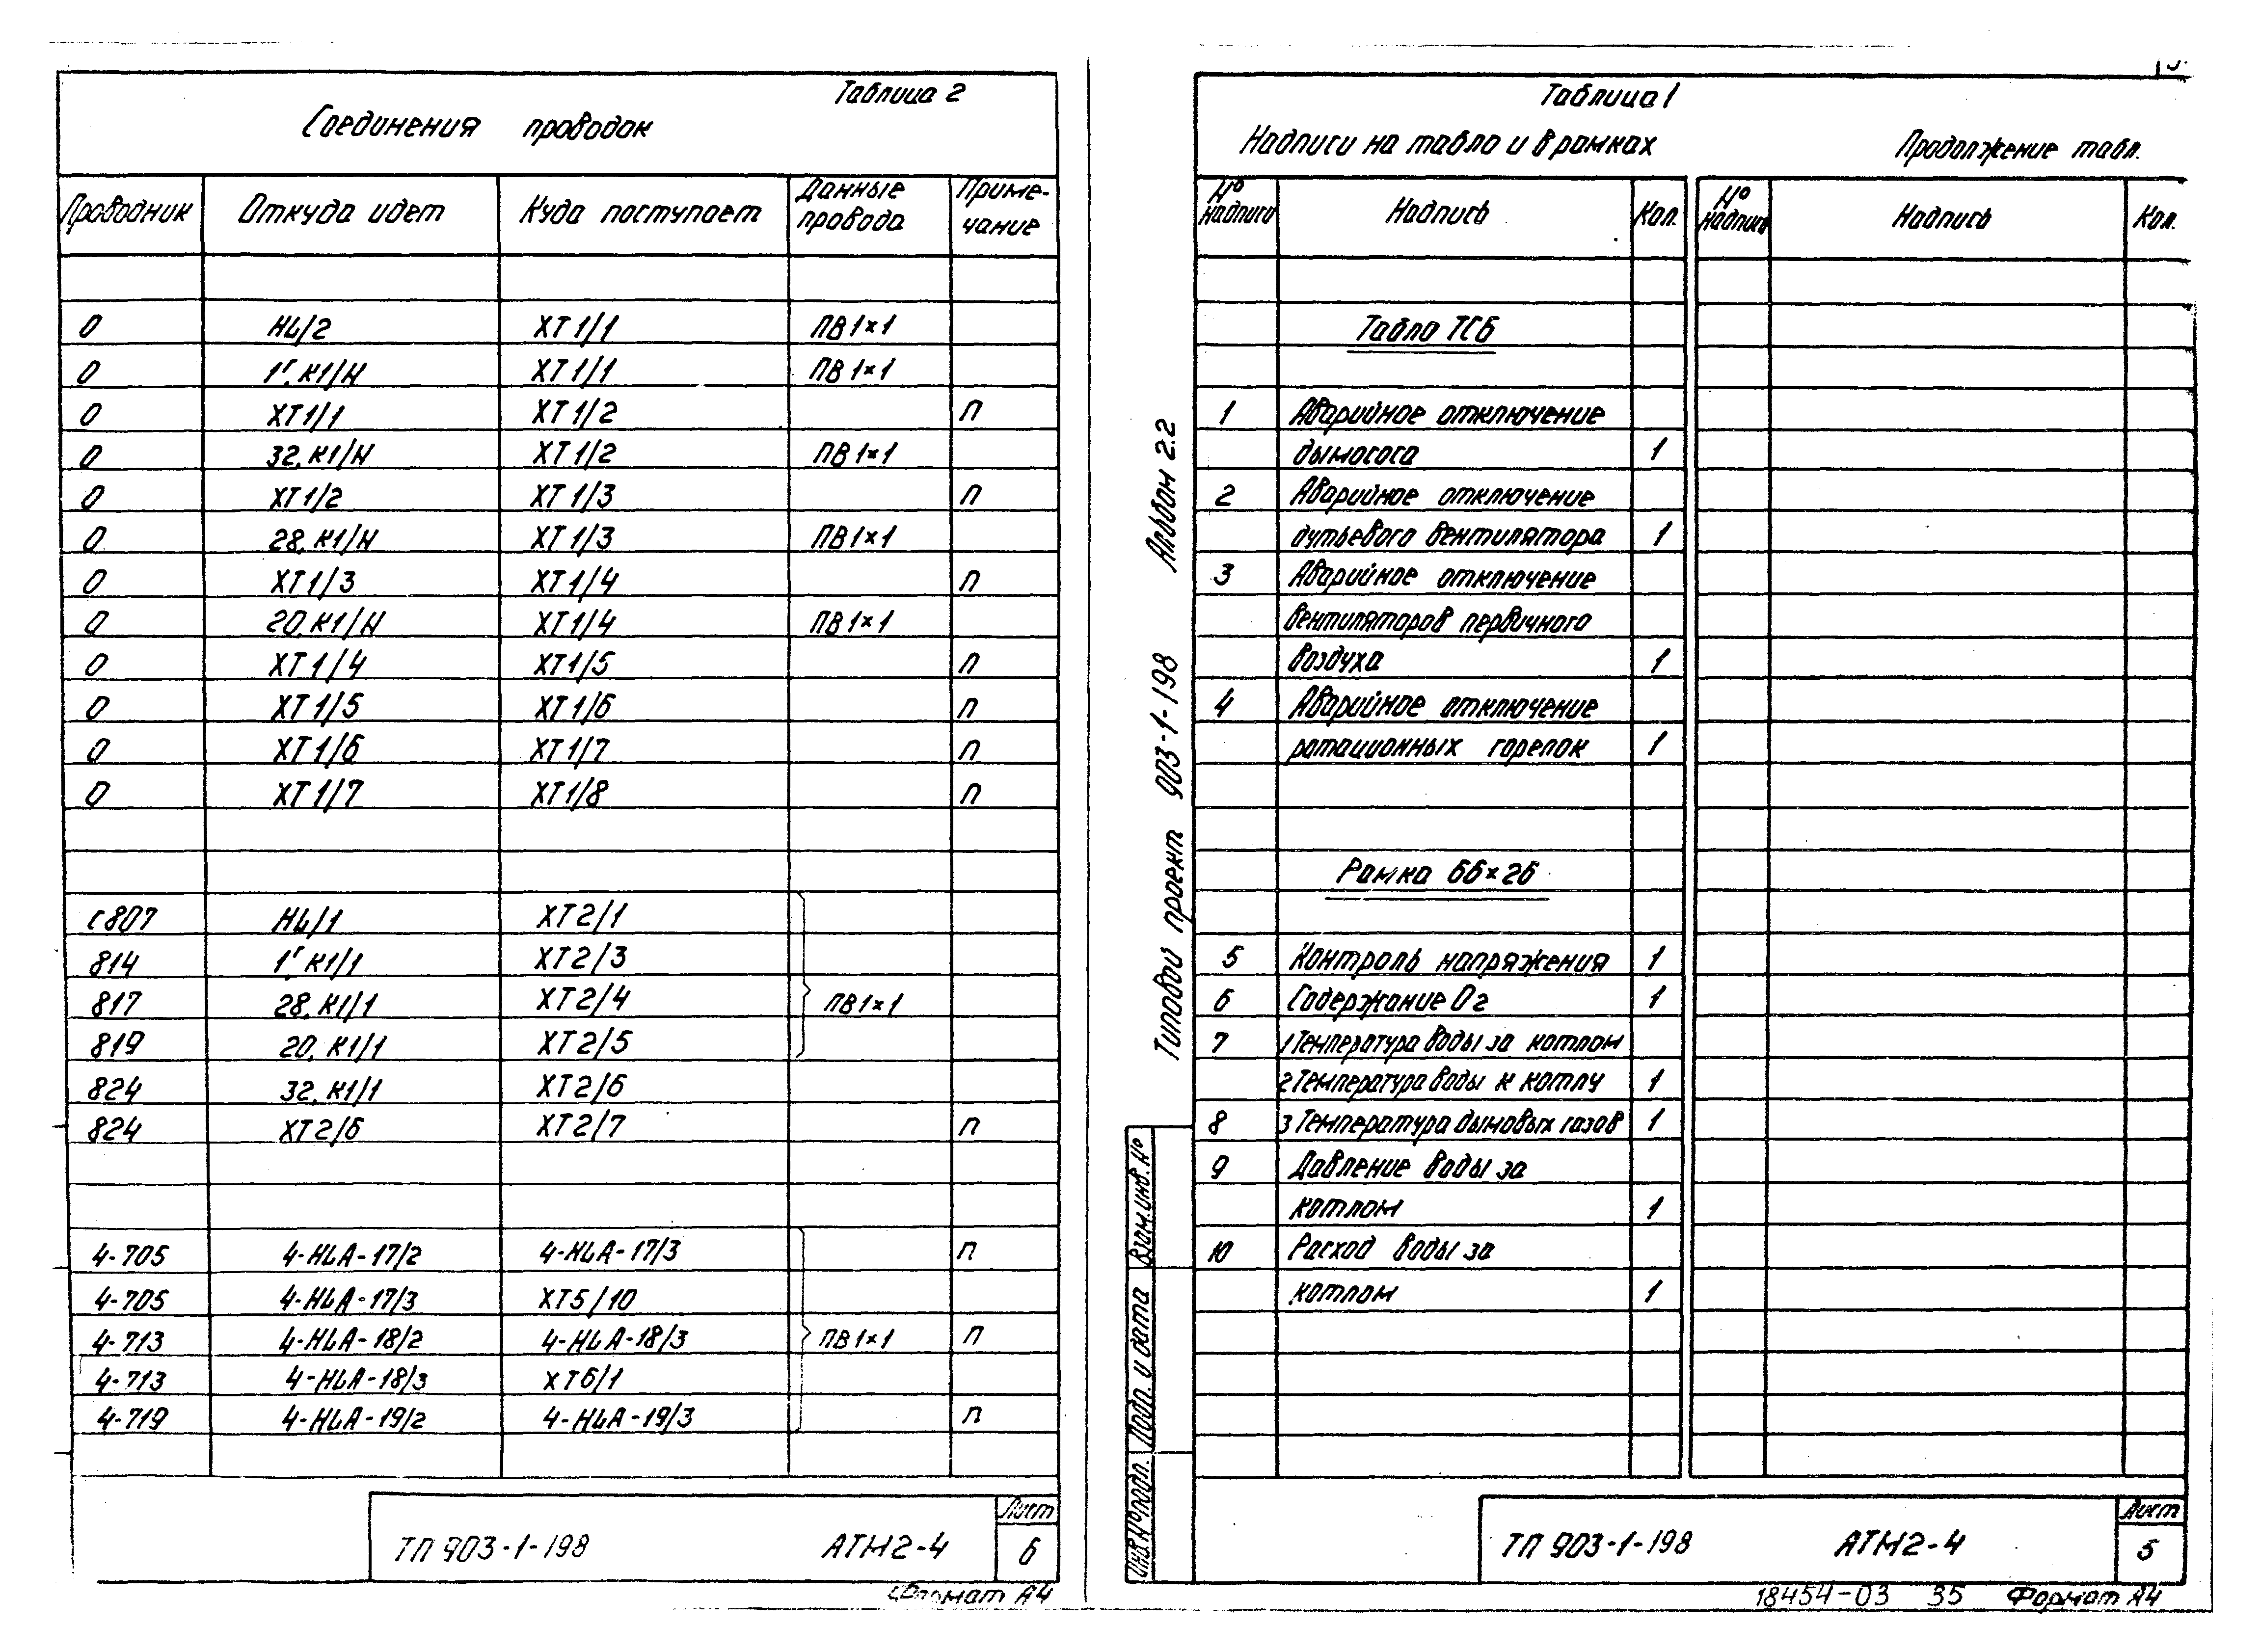 Таблица 2
Соединения проводок
Проводник Откуда идет Куда поступает Данные провода Примечание
0 HL/2 ХТ1/1 ПВ1×1
0 1г, К1/Н ХТ1/1 ПВ1×1
0 ХТ1/1 ХТ1/2 П
0 32, К1/Н ХТ1/2 ПВ1×1
0 ХТ1/2 ХТ1/3 П
0 28, К1/Н ХТ1/3 ПВ1×1
0 ХТ1/3 ХТ1/4 П
0 20, К1/Н ХТ1/4 ПВ1×1
0 ХТ1/4 ХТ1/5 П
0 ХТ1/5 ХТ1/6 П
0 ХТ1/6 ХТ1/7 П
0 ХТ1/7 ХТ1/8 П
С807 HL/1 ХТ2/1
814 1г, К1/1 ХТ2/3
817 28, К1/1 ХТ2/4 ПВ1×1
819 20, К1/1 ХТ2/5
824 32, К1/1 ХТ2/6
824 ХТ2/6 ХТ2/7 П
4-705 4-HLA-17/2 4-HLA-17/3 П
4-705 4-HLA-17/3 ХТ5/10
4-713 4-HLA-18/2 4-HLA-18/3 ПВ1×1 П
4-713 4-HLA-18/3 ХТ6/1
4-719 4-HLA-19/2 4-HLA-19/3 П
ТП 903-1-198 АТМ2-4 Лист 6
Формат А4
Таблица 1
Надписи на табло и в рамках Продолжение табл.
№ надписи Надпись Кол. № надписи Надпись Кол.
Табло ТСБ
1 Аварийное отключение
дымососа 1
2 Аварийное отключение
дутьевого вентилятора 1
3 Аварийное отключение
вентиляторов первичного
воздуха 1
4 Аварийное отключение
ротационных горелок 1
Рамка 66×26
5 Контроль напряжения 1
6 Содержание О2 1
7 1 Температура воды за котлом
2 Температура воды к котлу 1
8 3 Температура дымовых газов 1
9 Давление воды за
котлом 1
10 Расход воды за
котлом 1
Типовой проект 903-1-198 Альбом 2.2
Инв.№ подл. Подп. и дата Взам.инв.№
ТП 903-1-198 АТМ2-4 Лист 5
18454-03 35 Формат А4